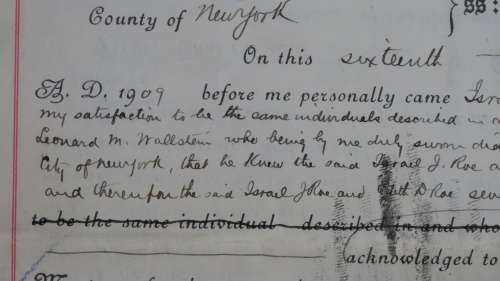 County of New York } ss:
On this sixteenth
A. D. 1909 before me personally came Isra
my satisfaction to be the same individuals described in
Leonard M. Wallstein who being by me duly sworn did
City of New York, that he knew the said Israel J. Roe a
and thereupon the said Israel J Roe and D Roe seve
to be the same individual described in and who
acknowledged to